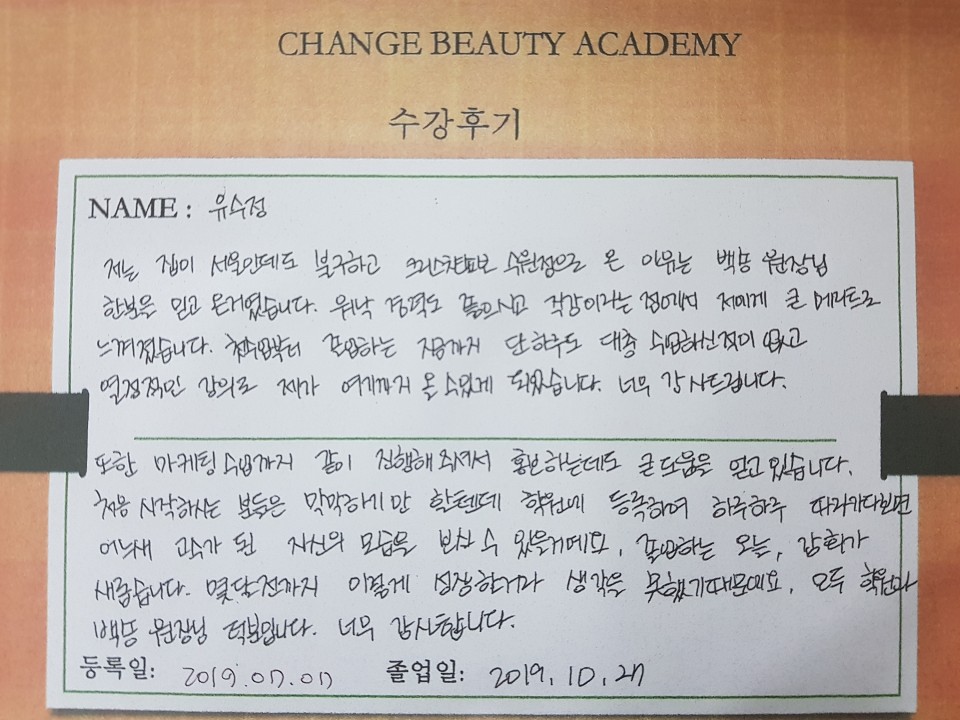 CHANGE BEAUTY ACADEMY
수강후기
NAME : 유수정
저는 집이 서울인데도 불구하고 크리스챤쇼보 수원점으로 온 이유는 백송 원장님
한분을 믿고 온거였습니다. 워낙 경력도 많으시고 직강이라는 점에서 저에게 큰 메리트로
느껴졌습니다. 첫수업부터 졸업하는 지금까지 단 하루도 대충 수업하신적이 없고
열정적인 강의로 제가 여기까지 올 수있게 되었습니다. 너무 감사드립니다.
또한 마케팅 수업까지 같이 진행해 주셔서 홍보하는데도 큰 도움을 얻고 있습니다.
처음 시작하시는 분들은 막막하게만 할텐데 학원에 등록하여 하루하루 따라가다보면
어느새 고수가 된 자신의 모습을 보실 수 있을거에요, 졸업하는 오늘, 감회가
새롭습니다. 몇달전까지 이렇게 성장할거라 생각을 못했기때문에요, 모두 학원과
백송 원장님 덕분입니다. 너무 감사합니다.
등록일: 2019.07.07 졸업일: 2019.10.27